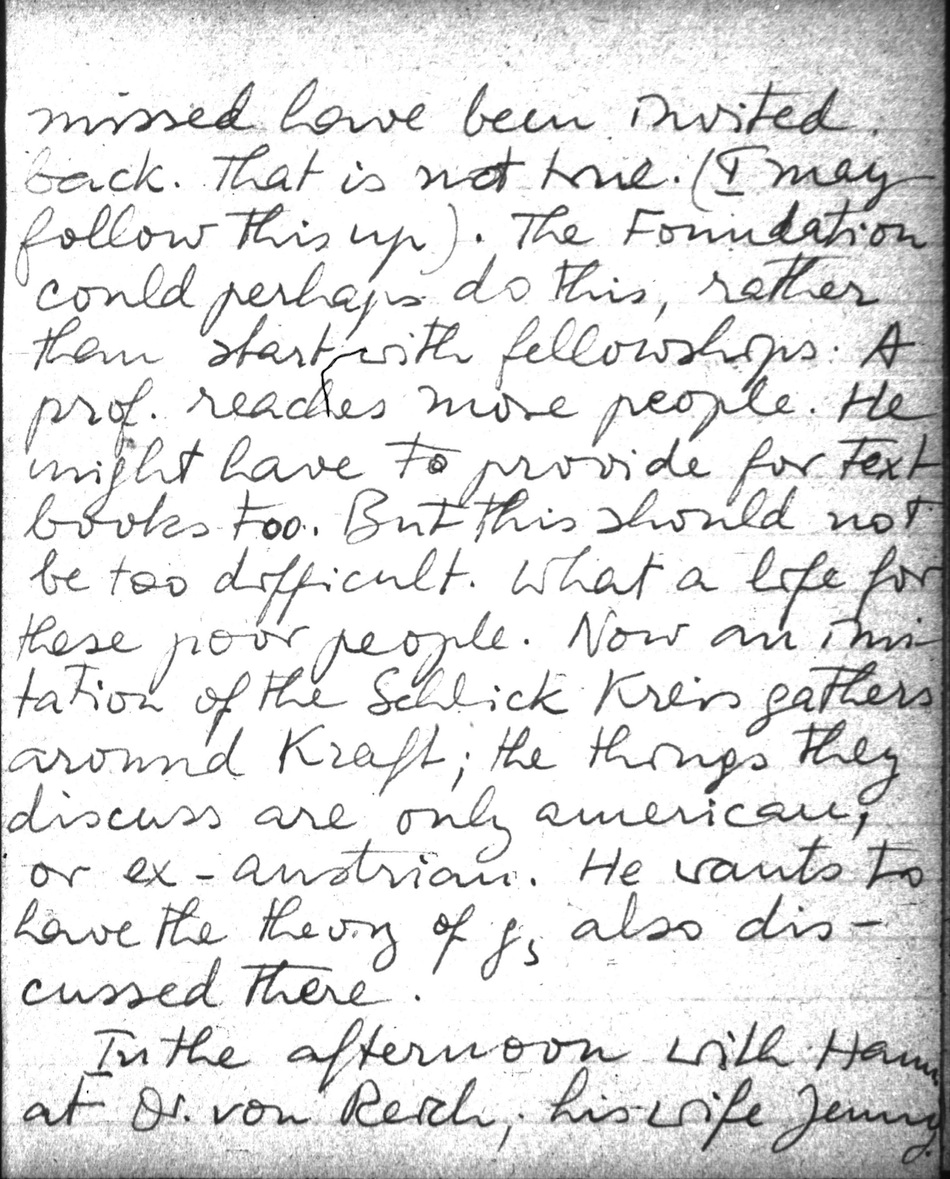 missed have been invited.
back. That is not true. (I may
follow this up). The Foundation
could perhaps do this, rather
than start with fellowships. A
prof. reaches more people. He
might have to provide for text
books too. But this should not
be too difficult. What a life for
these poor people. Now an imi-
tation of the Schlick Kreis gathers
around Kraft; the things they
discuss are only american,
or ex-austrian. He wants to
have the theory of g, also dis-
cussed there.
In the afternoon with Hann
at Dr. von Reich, his wife Jenny.